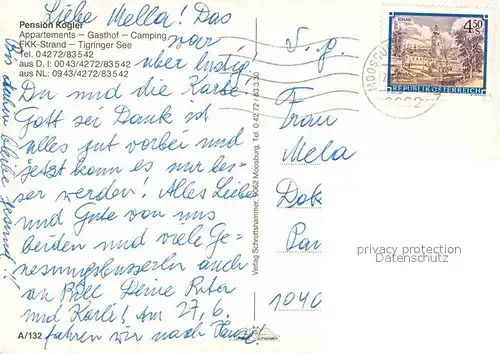 Pension Kogler
Appartements – Gasthof – Camping
FKK-Strand – Tigringer See
Tel. 0 42 72 / 83 5 42
aus D, I: 00 43 / 42 72 / 83 5 42
aus NL: 09 43 / 42 72 / 83 5 42
Liebe Mella! Das
war
aber lustig,
Du und die Karte!
Gott sei Dank ist
alles gut vorbei und
jetzt kann es nur bes-
ser werden! Alles Liebe
und Gute von uns
beiden und viele Ge-
nesungsbusserln auch
an Deine
und Karli! Am 27. 6.
fahren wir nach Hause!
Bis dahin bleibe gesund!
A/132
Verlag Schrottshammer, 9062 Moosburg, Tel. 0 42 72 / 83 3 30
Frau
Mela
Dok
Pan
1040
4,50
REPUBLIK ÖSTERREICH
MOOSBU
9062
privacy protection
Datenschutz